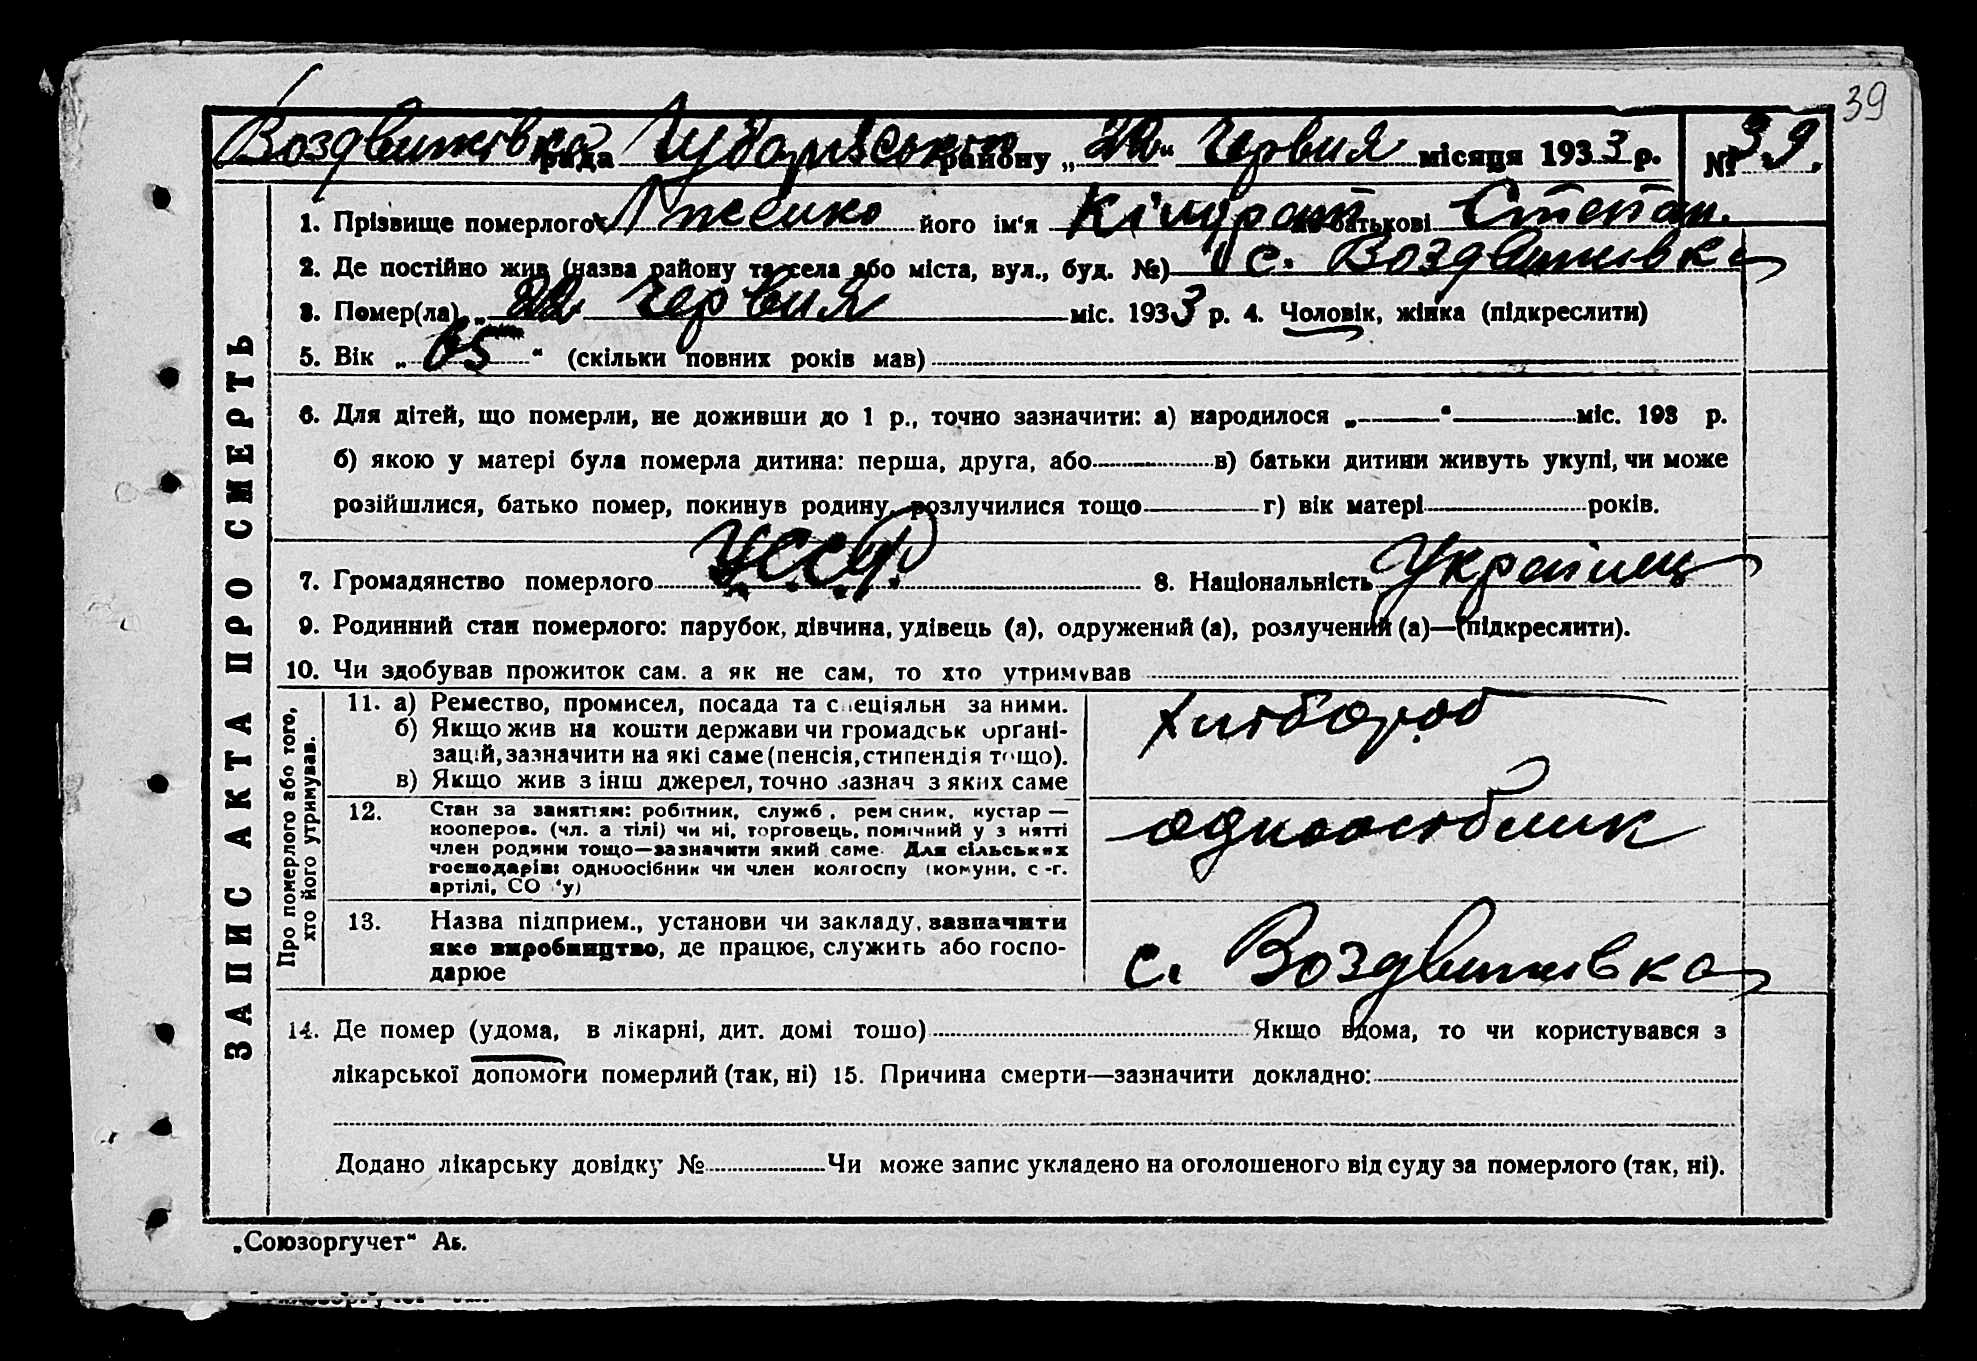 39
Воздвижівка рада Чубарівський району „22“ Червня місяця 1933 р. № 39.
1. Прізвище померлого його ім‘я по батькові Степан.
2. Де постійно жив (назва району та села або міста, вул., буд. №) с. Воздвижівка
3. Помер(ла) „22 Червня міс. 1933 р. 4. Чоловік, жінка (підкреслити)
5. Вік „65“ (скільки повних років мав)
6. Для дітей, що померли, не доживши до 1 р., точно зазначити: а) народилося „ “ міс. 193 р.
б) якою у матері була померла дитина: перша, друга, або в) батьки дитини живуть укупі, чи може
розійшлися, батько помер, покинув родину, розлучилися тощо г) вік матері років.
7. Громадянство померлого У.С.С.Р. 8. Національність Українець
9. Родинний стан померлого: парубок, дівчина, удівець (а), одружений (а), розлучений (а)—(підкреслити).
10. Чи здобував прожиток сам. а як не сам, то хто утримував
ЗАПИС АКТА ПРО СМЕРТЬ
Про померлого або того,
хто його утримував.
11. а) Ремество, промисел, посада та спеціяльн за ними.
б) Якщо жив на кошти держави чи громадськ органі-
зацій, зазначити на які саме (пенсія, стипендія тощо).
в) Якщо жив з інш джерел, точно зазнач з яких саме
хлібороб
12. Стан за заняттям: робітник, служб, рем сник, кустар —
кооперов. (чл. а тілі) чи ні, торговець, помічний у з нятті
член родини тощо—зазначити який саме. Для сільських
господарів: одноосібник чи член колгоспу (комуни, с -г.
артілі, СО у)
одноосібник
13. Назва підприєм., установи чи закладу, зазначити
яке виробництво, де працює, служить або госпо-
дарює
с. Воздвижівка
14. Де помер (удома, в лікарні, дит. домі тошо) Якщо вдома, то чи користувався з
лікарської допомоги померлий (так, ні) 15. Причина смерти—зазначити докладно:
Додано лікарську довідку № Чи може запис укладено на оголошеного від суду за померлого (так, ні).
„Союзоргучет“ Аб.